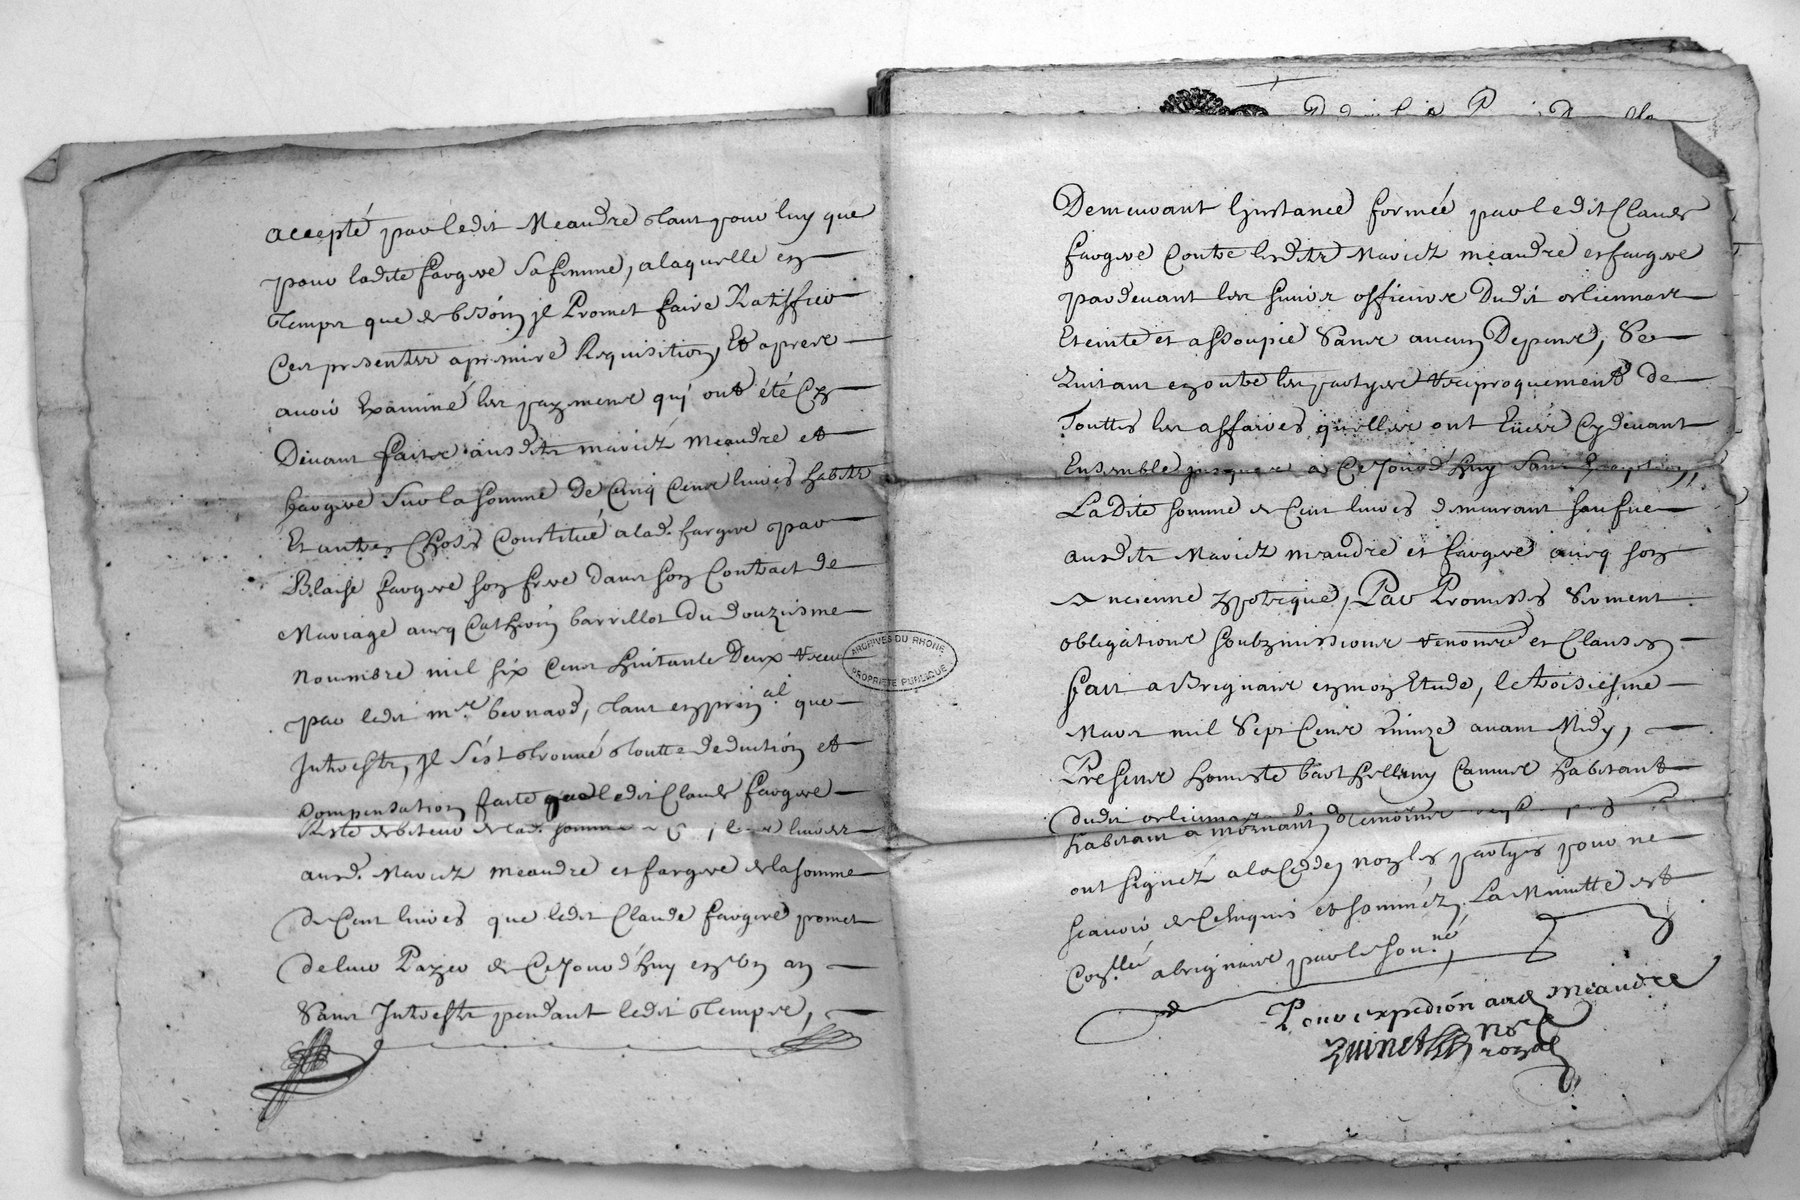 accepté par ledit Meandre tant pour luy que
pour ladite fargere sa femme, a laquelle en
temps que de besoin jl Promet faire Ratiffier
Ces presentes a premire Requisition, Et apres
avoir Examiné les payemens quj ont été Cy
Devant faits ausdits mariez Meandre et
fargere Sur la somme de Cinq Cens livres habits
Et autres Choses Constitué a lad. fargere par
Blaise fargere son frere dans son Contract de
Mariage avec Catherin barrillot du douziesme
Novembre mil six Cens huitante Deux receu
par ledit mr. bernard, tant en prin.al que
Jnterests, jl s'est trouvé toutte deduction et
Compensation faite que ledit Claude fargere
Reste debiteur de lad. somme de livres
ausd. Mariez Meandre et fargere de la somme
de Cent livres que ledit Claude fargere promet
de leur Payer de Ce Jourd'huy en un an
Sans Jnterests pendant ledit temps,
ARCHIVES DU RHONE
PROPRIETE PUBLIQUE
Demeurant L'jnstance formée par ledit Claude
fargere Contre lesdits Mariez Meandre et fargere
pardevant les sieurs officiers Dudit orliennas
Eteinte et assoupie Sans aucun Depens, Se
Quitant en outre les partyes reciproquement de
Touttes les affaires qu'elles ont Eües Cy devant
Ensemble jusques a Ce Jourd'huy Sans Exception,
La Dite somme de Cent livres demeurant
ausdits Mariez Meandre et fargere avec son
Ancienne ypoteque, Par Promesses Serment
obligations soubzmissions renonces et Clauses
fait a Brignais en mon Etude, le troisiesme
Mars mil Sept Cens Quinze avant Midy,
Presens honneste barthellemy Camus habitant
dudit orliennas
habitant a mornant temoins
ont signez a la Cedde, non les partyes pour ne
scavoir de Ce Enquis et sommez, La Minutte est
Con.llée a brignais par le sou.né
Pour expedi&#8203;ón aud. Meandre
Quinet nore
royal